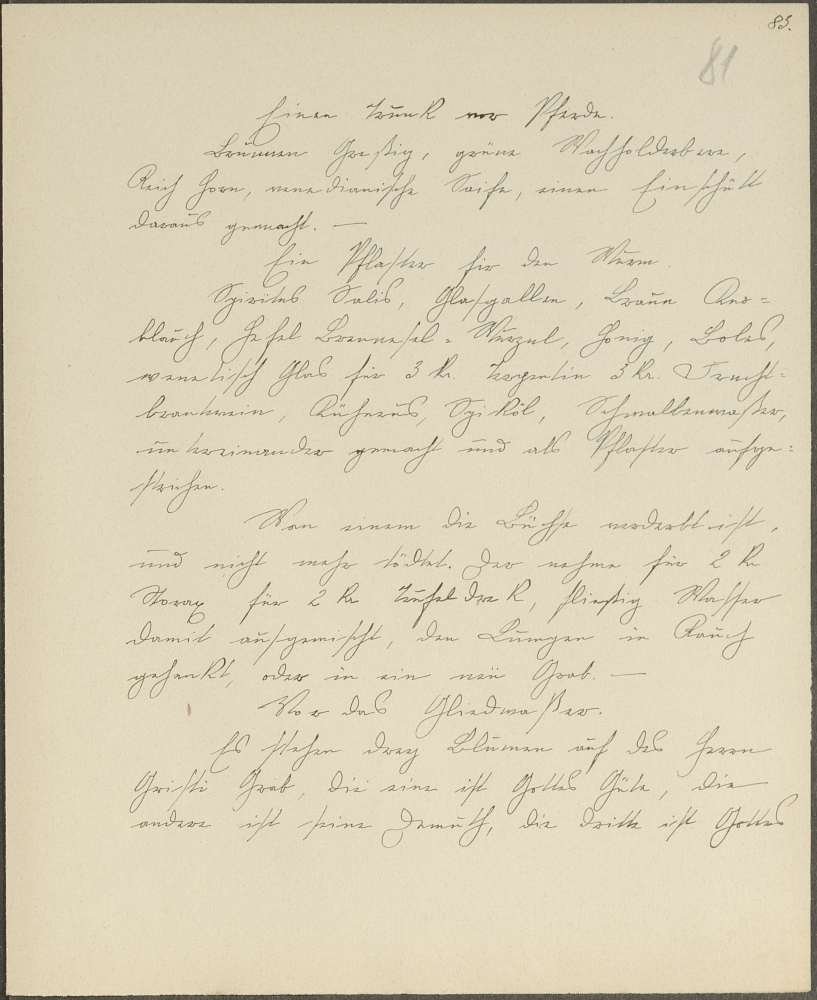 85.
81
Einen Trunk vor Pferde.
Brunnen Greßig, grüne Wachholderbere,
Reich Horn, venedianische Seife, einen Einschütt
daraus gemacht. —
Ein Pflaster fir den Wurm.
Spiritus Salis, Glasgallen, Braun
Brennesel-Wurzel, Honig, Bolus,
venetisch Glas für 3 Kr. Terpentin 3 Kr. Frucht-
brantwein, Spiköl, Schwalbenwaßer,
untereinander gemacht und als Pflaster aufge-
strichen.
Wan einem die Büchse verderbt ist,
und nicht mehr tödtet. Der nehme für 2 Kr
Storax für 2 Kr Teufeldreck, fließig Wasser
damit ausgewischt, den Lumpen in Rauch
gehenkt, oder in ein neu Grab. —
Vor das Gliedwaßer.
Es stehen drey Blumen auf des Herrn
Gristi Grab, die eine ist Gottes Güte, die
andere ist seine Demuth, die dritte ist Gottes